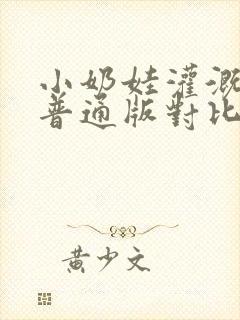 小奶娃灌溉
普通版對比
黃少文